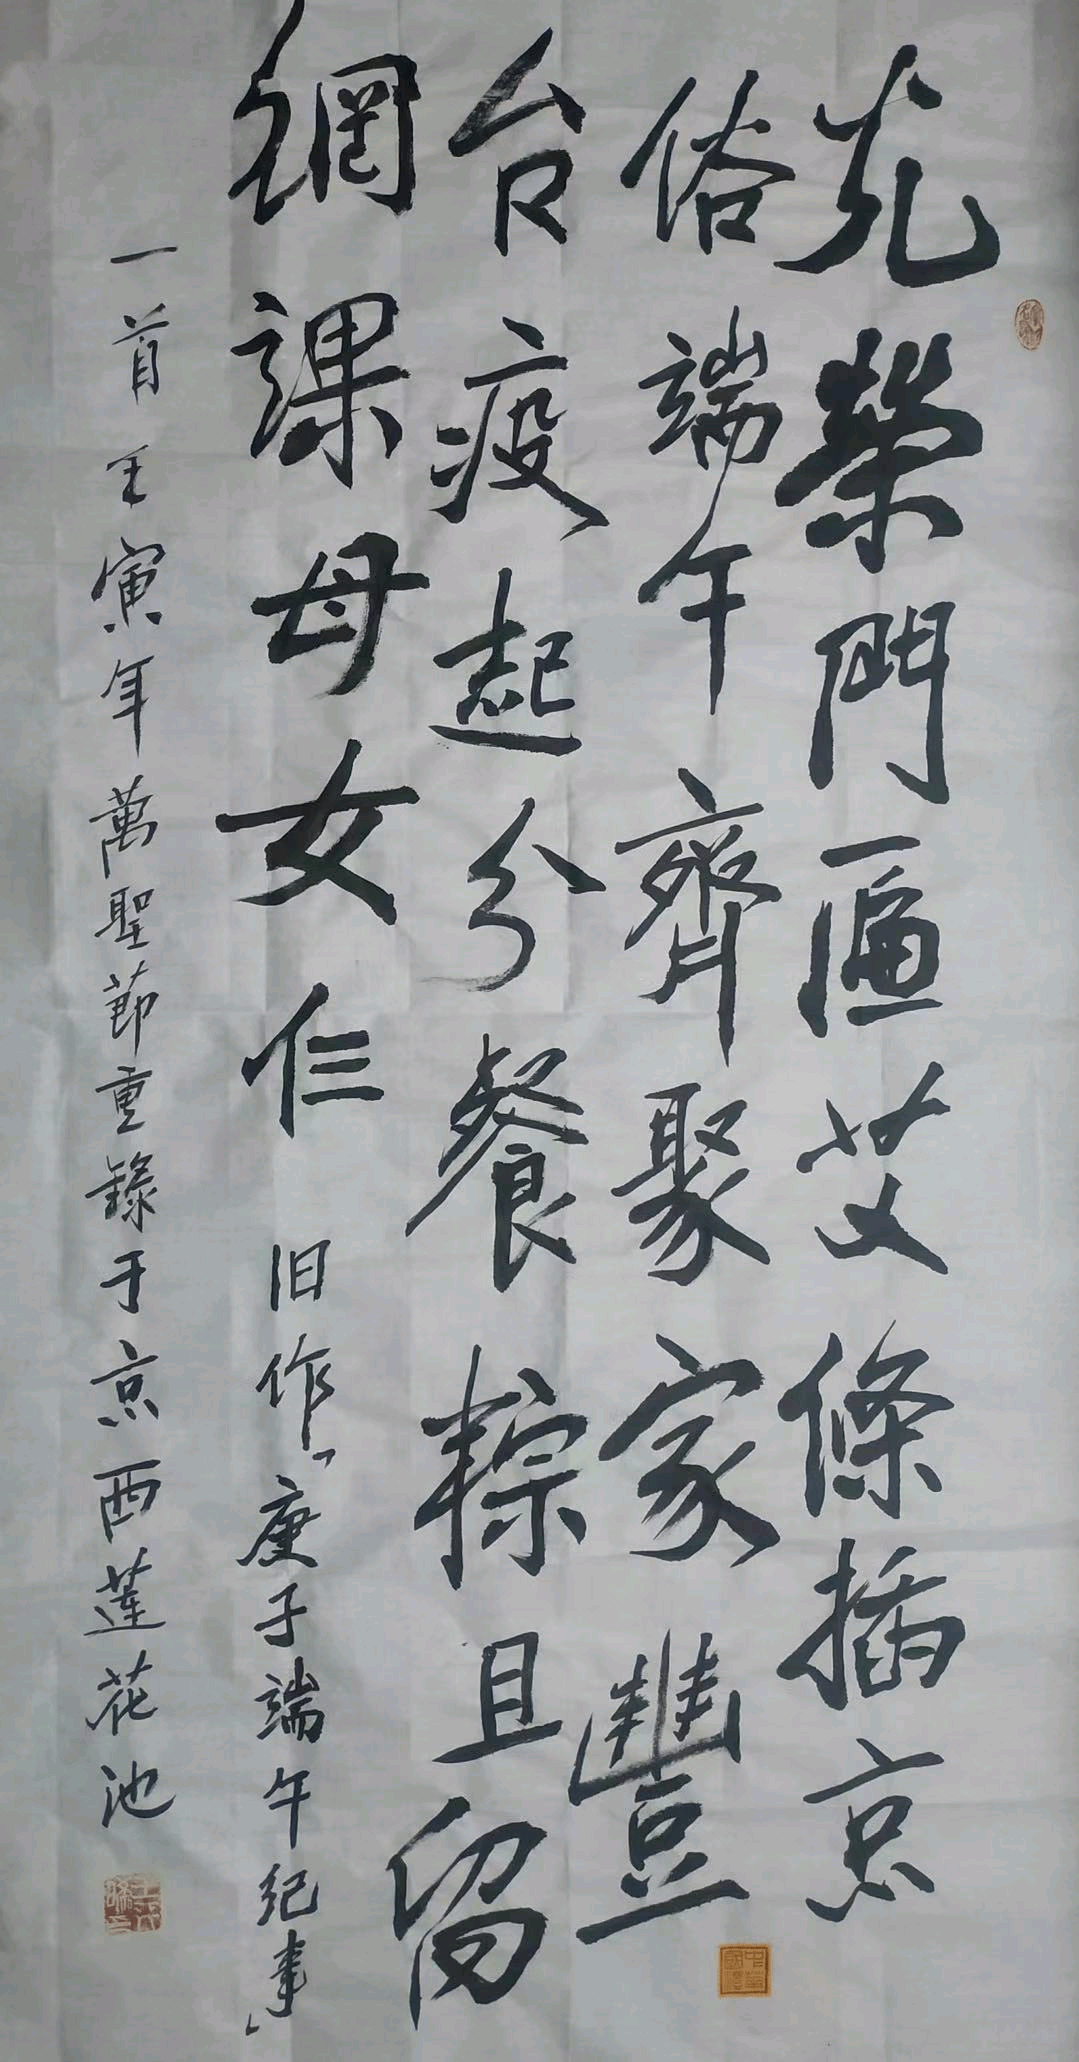 光榮門匾艾條插京
俗端午齊聚家豐
台疫起分餐粽且留
網課母女仨 旧作「庚子端午纪事」
一首 壬寅年萬聖節重錄于京西蓮花池